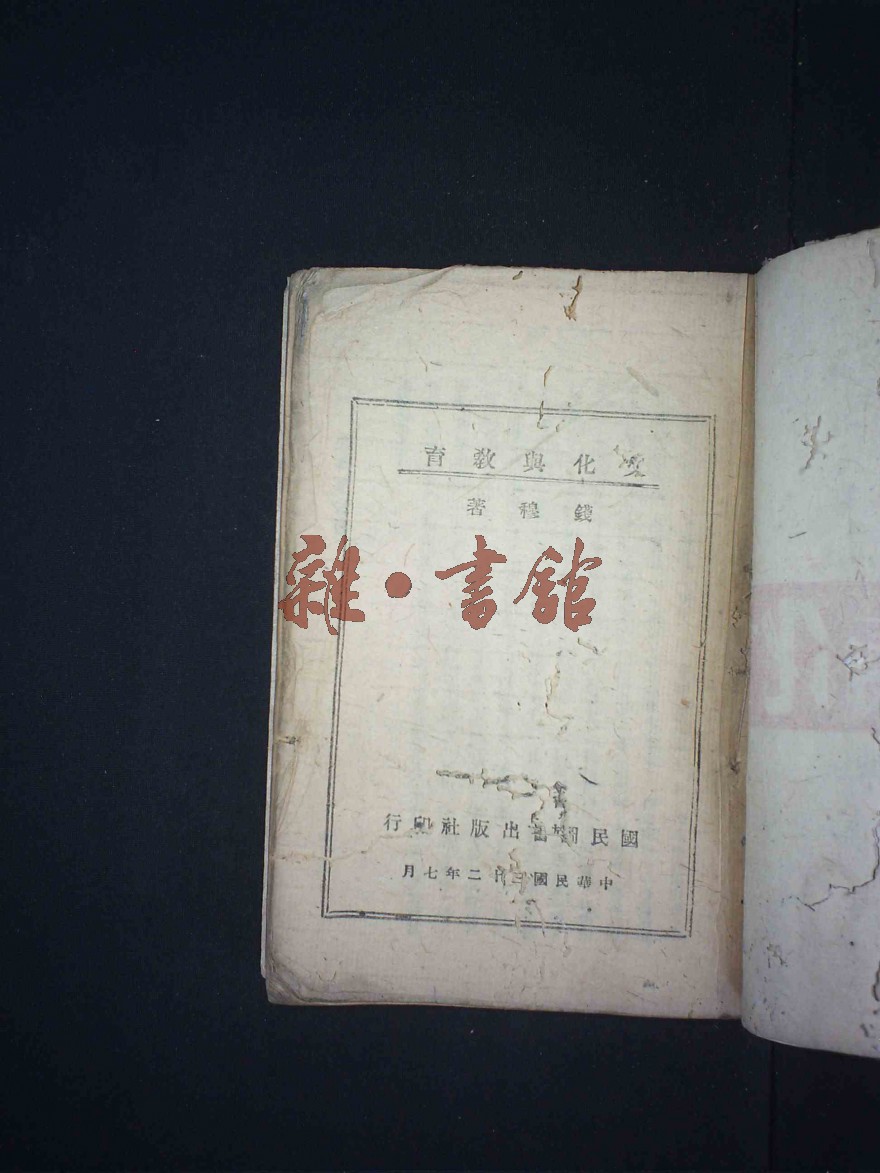 文化與教育
錢穆著
雜·書館
國民圖書出版社印行
中華民國三十二年七月
化